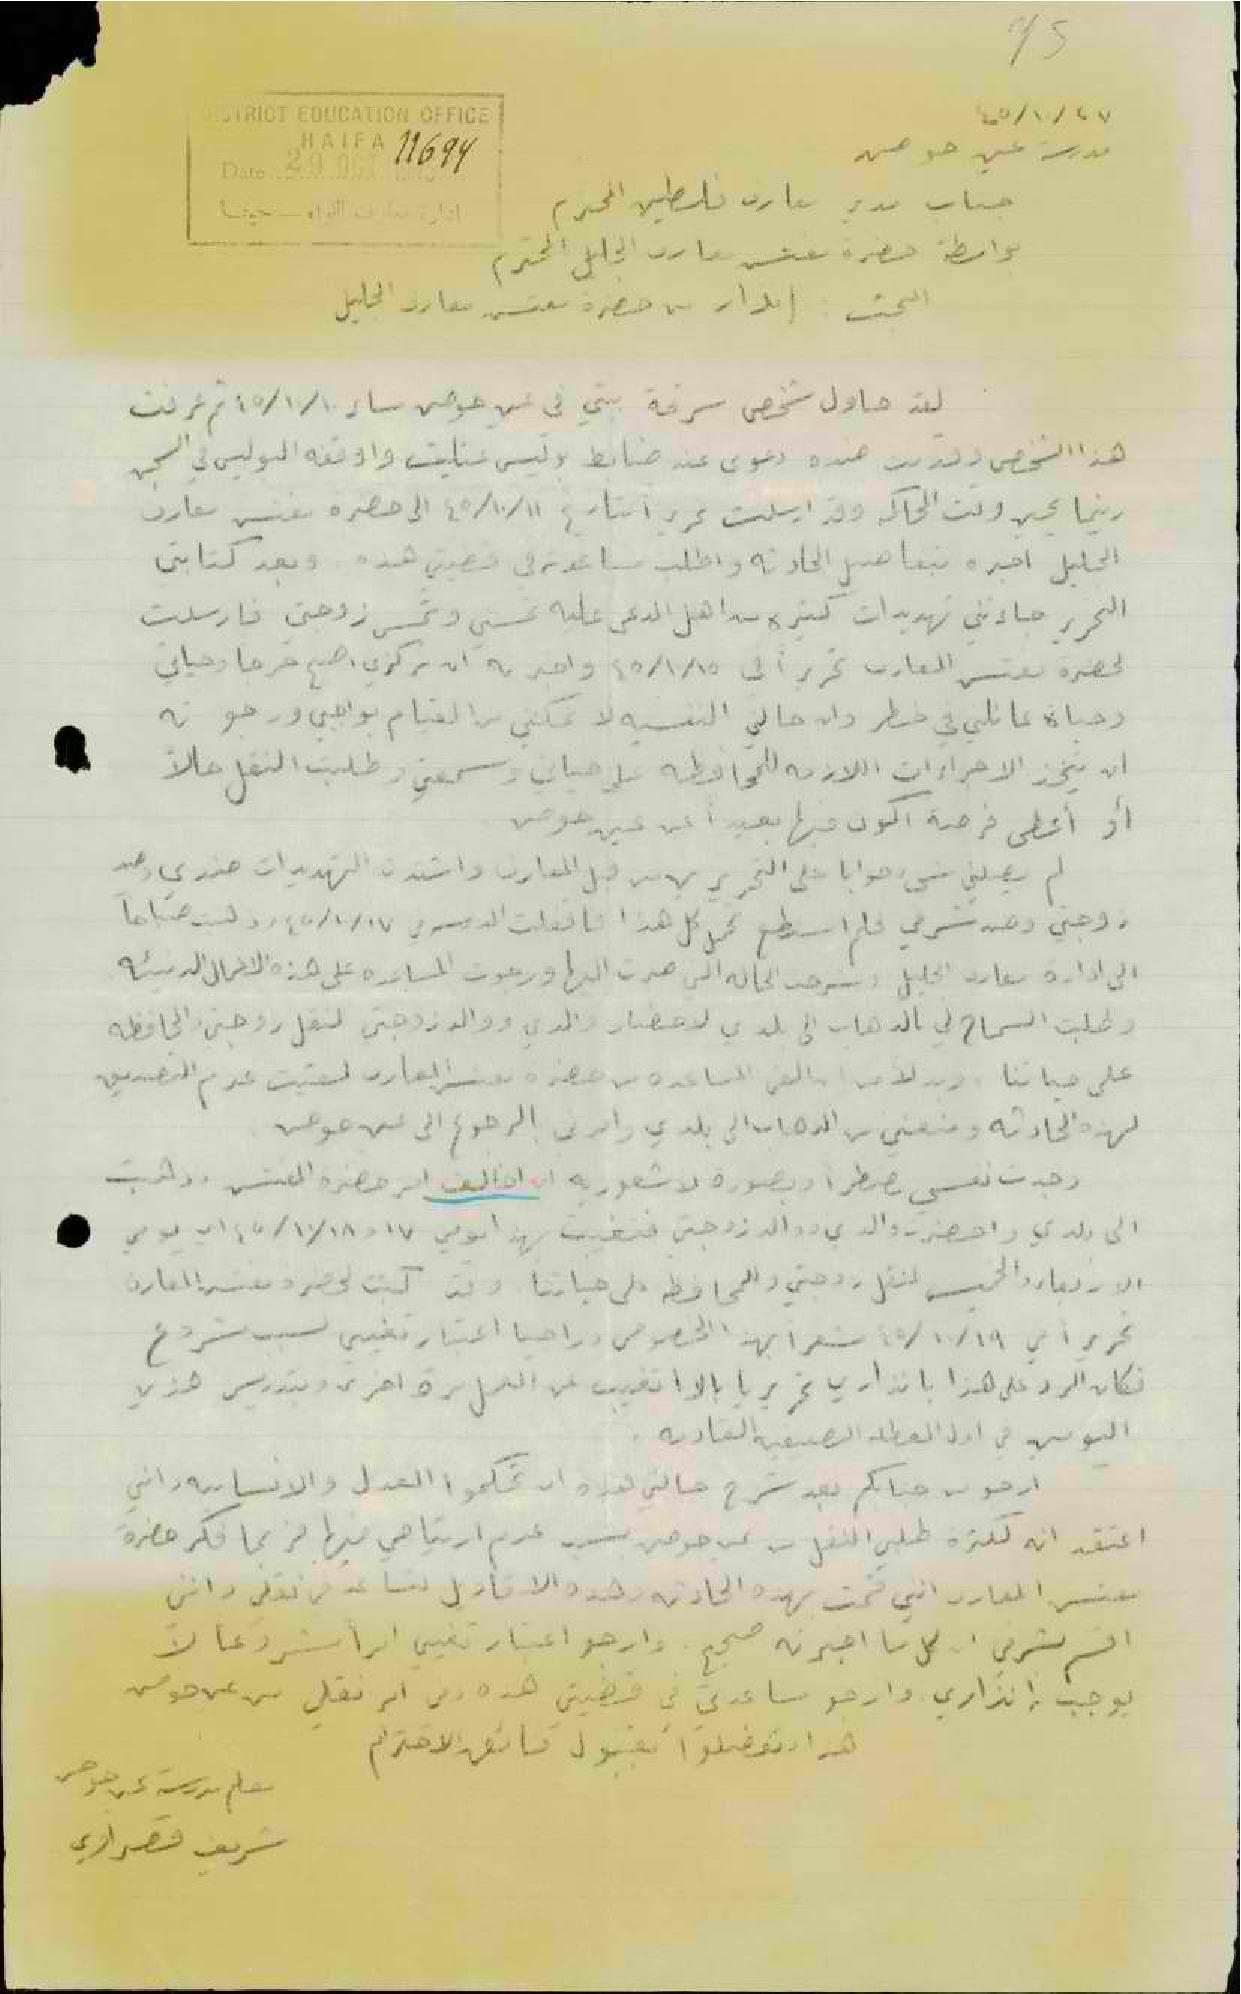 95
DISTRICT EDUCATION OFFICE
HAIFA 11694
Date 29 OCT
ادارة معارف اللواء - حيفا
٤٥/١٠/٢٧
مدرسة عين حوض
جناب مدير معارف فلسطين المحترم
بواسطة حضرة مفتش معارف الجليل المحترم
البحث : إنذار من حضرة مفتش معارف الجليل
لقد حاول شخص سرقة بيتي في عين حوض مساء ٤٥/١٠/١٠ ثم عرفت
هذا الشخص وقدمت ضده دعوى عند ضابط بوليس عتليت واوقفه البوليس في السجن
ريثما يحين وقت المحاكمه وقد ارسلت تحريرا بتاريخ ٤٥/١٠/١١ الى حضرة مفتش معارف
الجليل اخبره بتفاصيل الحادثه واطلب مساعدته في قضيتي هذه . وبعد كتابتي
التحرير جاءتني تهديدات كثيرة من اهل المدعى عليه تمسني وتمس زوجتي فارسلت
لحضرة مفتش المعارف تحريرا في ٤٥/١٠/١٥ واخبرته ان مركزي اصبح حرجا وحياتي
وحياة عائلتي في خطر وان حالتي النفسيه لا تمكنني من القيام بواجبي ورجوته
ان يتخذ الاجراءات اللازمه للمحافظه على حياتي وسمعتي وطلبت النقل حالاً
أو أعطى فرصة اكون فيها بعيداً عن عين حوض
لم يصلني شيء جوابا على التحرير من قبل المعارف واشتدت التهديدات ضدي وضد
زوجتي وضد شرفي فلم استطع تحمل كل هذا فاقفلت المدرسه في ٤٥/١٠/١٧ وذهبت صباحاً
الى ادارة معارف الجليل وشرحت الحاله التي صرت اليها ورجوت المساعده على هذه الاعمال الدنيئه
وطلبت السماح لي بالذهاب الى بلدي لاحضار والدي ووالد زوجتي لنقل زوجتي والمحافظه
على حياتنا . وبدلا من ان القى المساعده من حضرة مفتش المعارف لقيت عدم التصديق
لهذه الحادثه ومنعني من الذهاب الى بلدي وامرني بالرجوع الى عين حوض .
وجدت نفسي مضطراً وبصورة لا شعوريه ان اخالف امر حضرة المفتش وذهبت
الى بلدي واحضرت والدي ووالد زوجتي فتغيبت بهذا يومي ١٧ و ٤٥/١٠/١٨ اي يومي
الاربعاء والخميس لنقل زوجتي وللمحافظه على حياتنا . وقد كتبت لحضرة مفتش المعارف
تحريراً في ٤٥/١٠/١٩ مشعراً بهذا الخصوص وراجيا اعتبار تغيبي لسبب مشروع
فكان الرد على هذا بانذاري تحريريا بالا اتغيب عن العمل مرة اخرى وبتدريس هذين
اليومين في اول العطله الصيفيه القادمه .
ارجو من جنابكم بعد شرح حالتي هذه ان تحكموا العدل والانسانيه وانني
اعتقد انه لكثرة طلبي النقل من عين حوض بسبب عدم ارتياحي فيها فربما فكر حضرة
مفتش المعارف انني قمت بهذه الحادثه وهذه الاقاويل لتساعد في نقلي وانني
اقسم بشرفي ان كل ما اخبرته صحيح . وارجو اعتبار تغيبي امراً مشروعا لا
يوجب انذاري . وارجو مساعدتي في قضيتي هذه وفي امر نقلي من عين حوض
هذا وتفضلوا بقبول فائق الاحترام
معلم مدرسة عين حوض
شريف